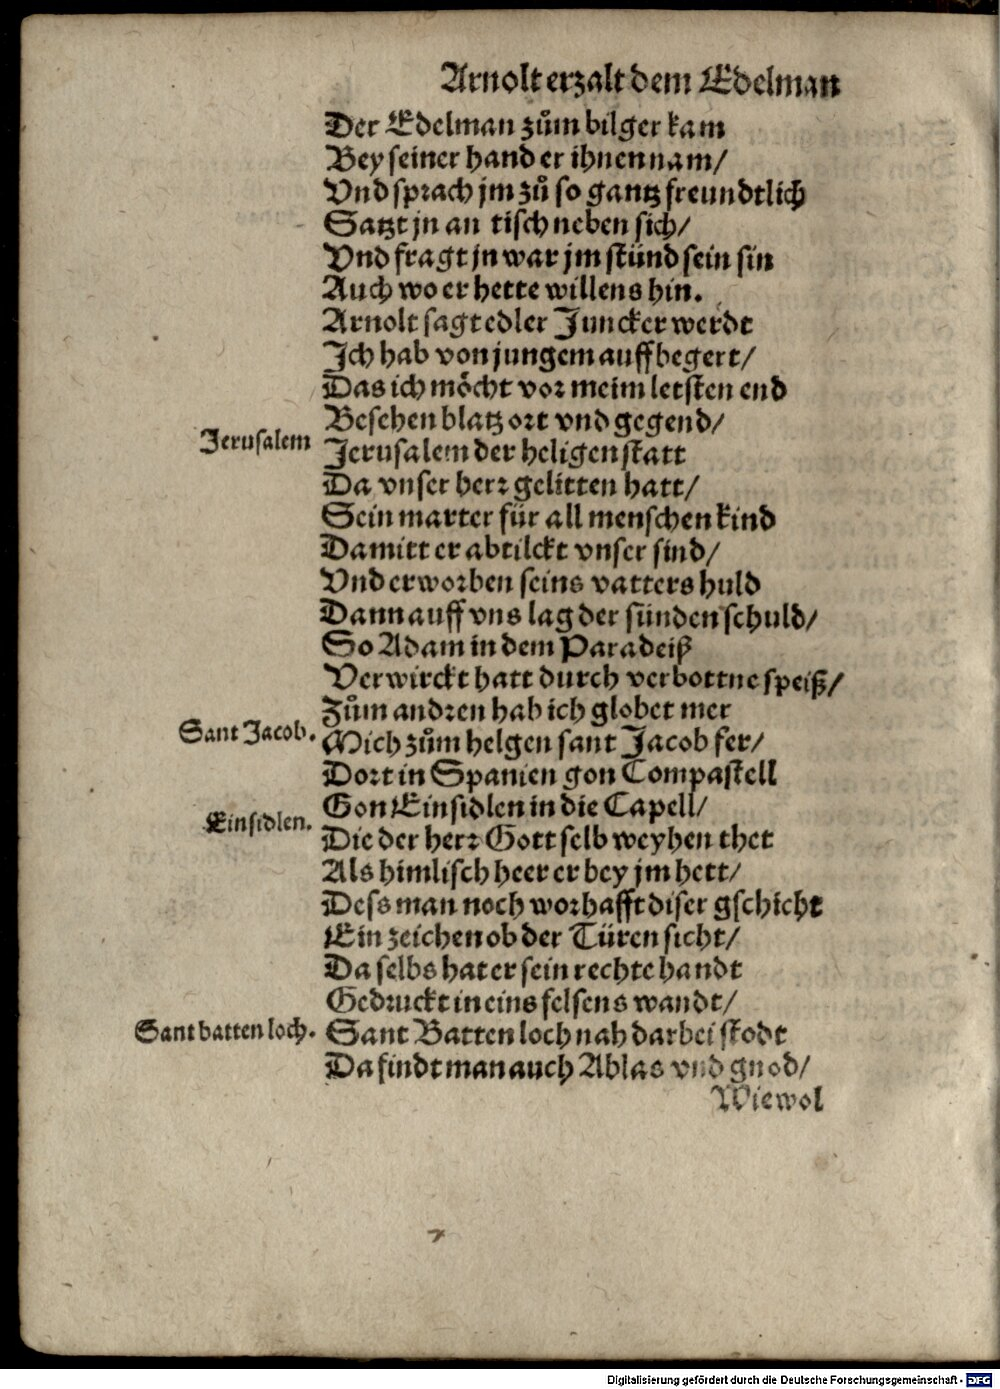 Arnolt erzalt dem Edelman
Der Edelman zům bilger kam
Bey seiner hand er ihnen nam/
Vnd sprach jm zů so gantz freundtlich
Satzt jn an tisch neben sich/
Vnd fragt jn war jm stünd sein sin
Auch wo er hette willens hin.
Arnolt sagt edler Juncker werdt
Ich hab von jungem auff begert/
Das ich möcht vor meim letsten end
Besehen blatz ort vnd gegend/
Jerusalem
Jerusalem der heligen statt
Da vnser herr gelitten hatt/
Sein marter für all menschen kind
Damitt er abtilckt vnser sind/
Vnd erworben seins vatters huld
Dann auff vns lag der sünden schuld/
So Adam in dem Paradeiß
Verwirckt hatt durch verbottne speiß/
Zům andren hab ich globet mer
Sant Jacob.
Mich zům helgen sant Jacob fer/
Dort in Spanien gon Compastell
Gon Einsidlen in die Capell/
Einsidlen.
Die der herr Gott selb weyhen thet
Als himlisch heer er bey jm hett/
Dess man noch worhafft diser gschicht
Ein zeichen ob der Türen sicht/
Da selbs hat er sein rechte handt
Gedruckt in eins felsens wandt/
Sant batten loch.
Sant Batten loch nah darbei stodt
Da findt man auch Ablas vnd gnod/
Wiewol
Digitalisierung gefördert durch die Deutsche Forschungsgemeinschaft - DFG